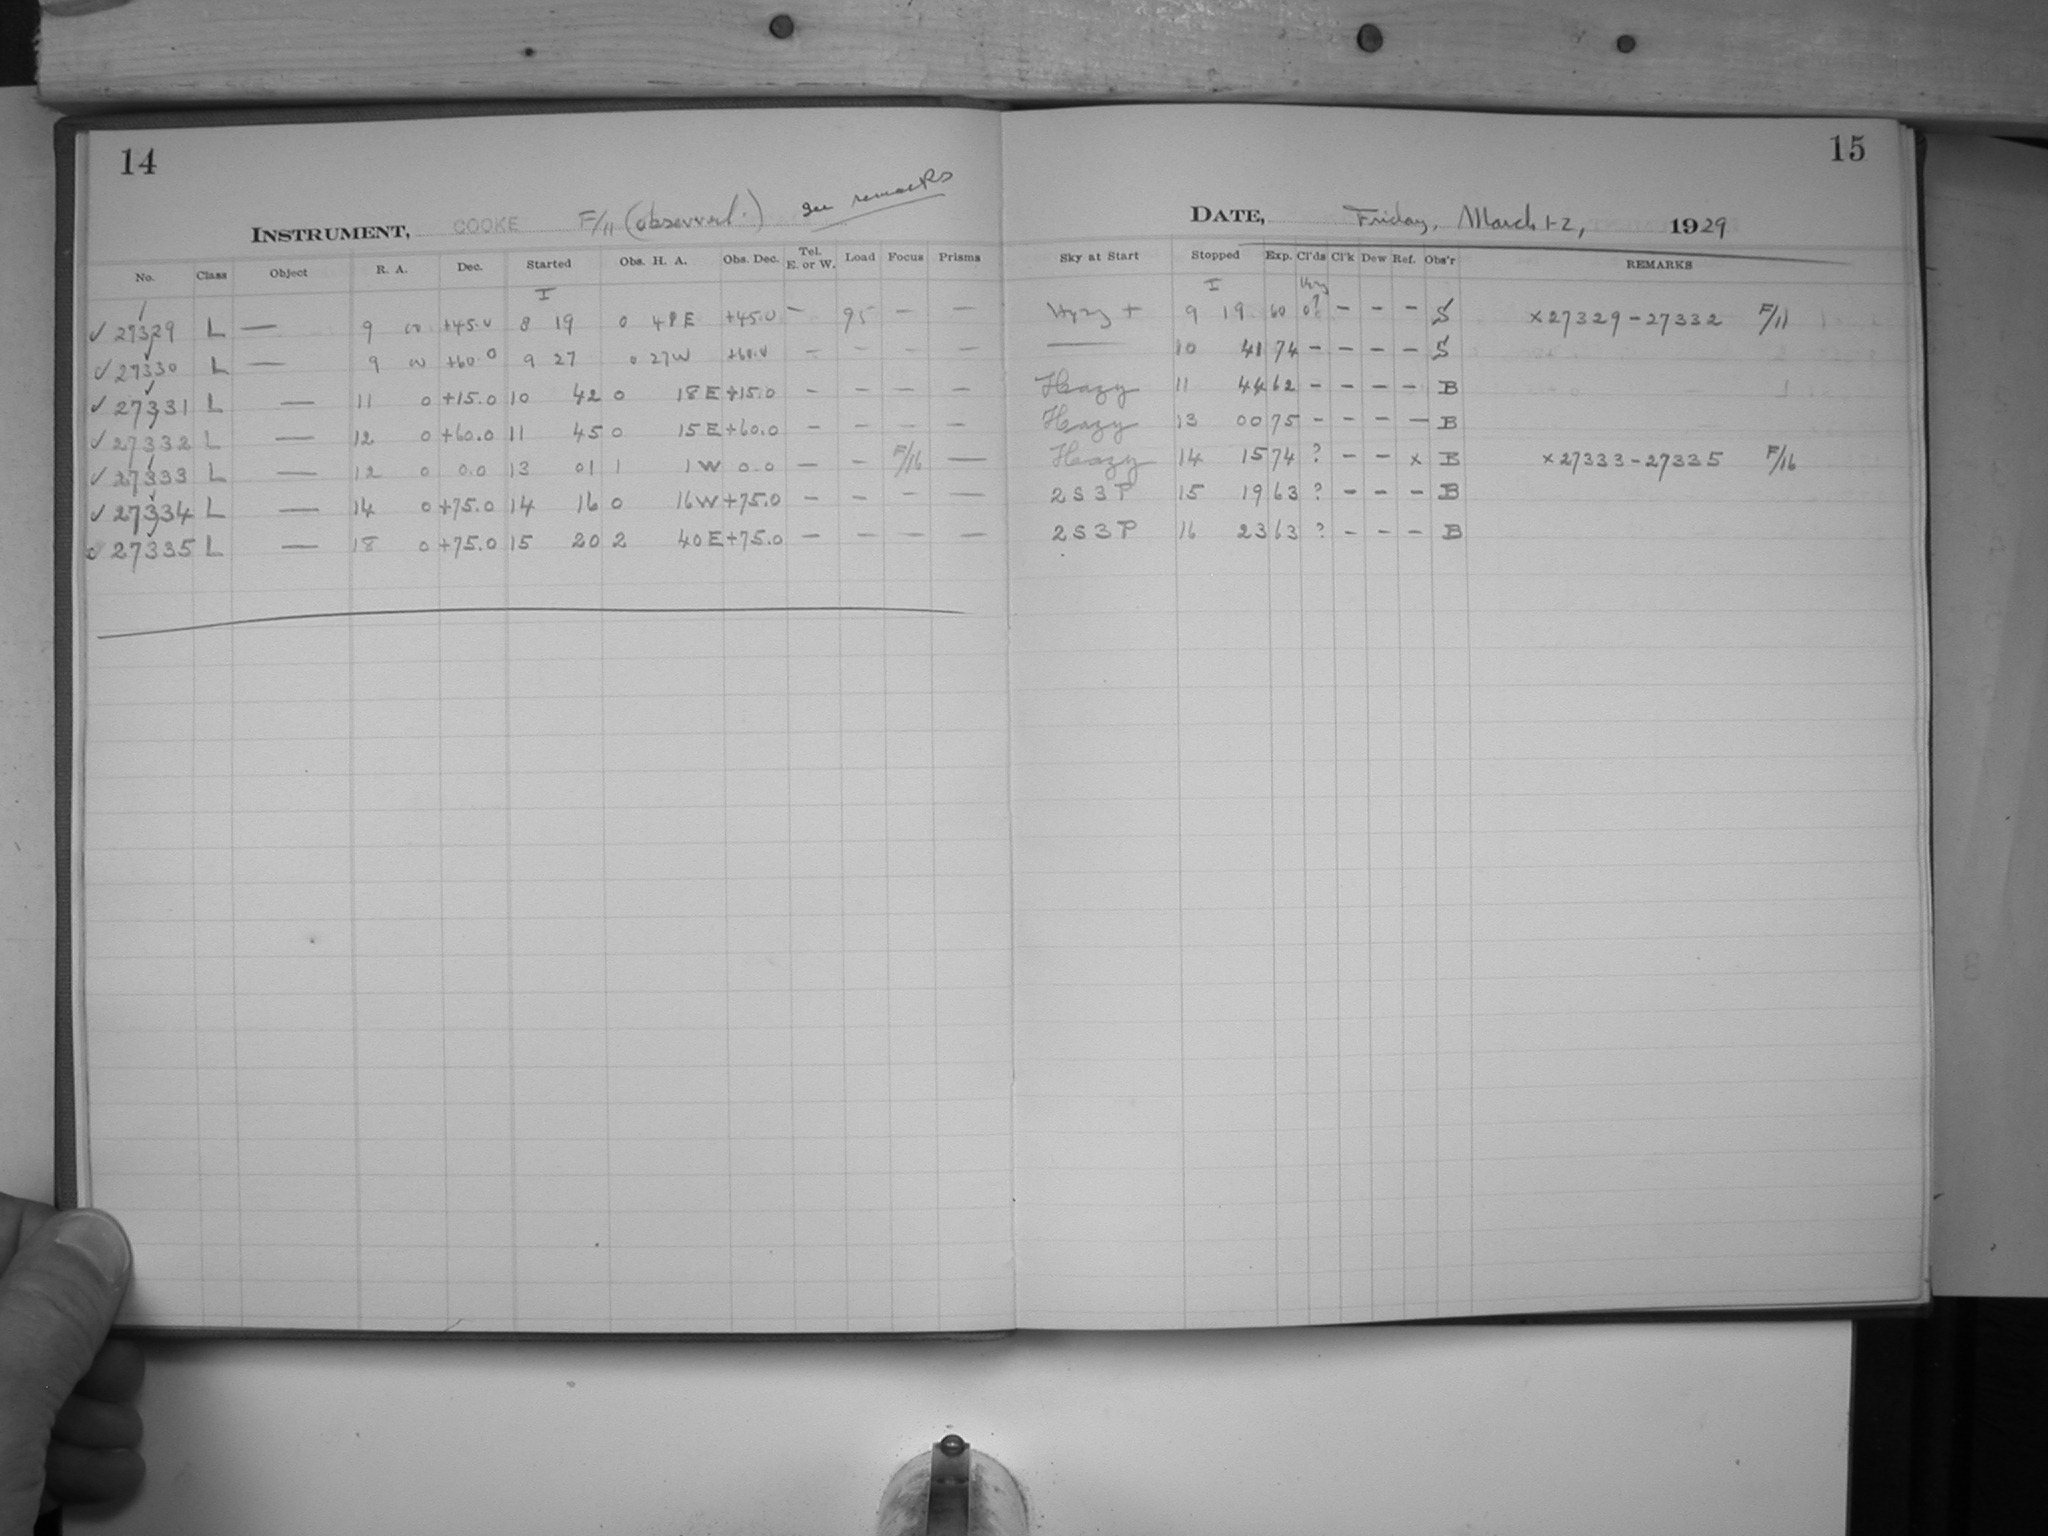 14
INSTRUMENT, COOKE F/11 (observed.) see remarks
No. Class Object R. A. Dec. Started Obs. H. A. Obs. Dec. Tel. E. or W. Load Focus Prisms
I
✓ 27329 L — 9 00 +45.0 8 19 0 48 E +45.0 — 95 — —
✓ 27330 L — 9 00 +60.0 9 27 0 27 W +60.0 — — — —
✓ 27331 L — 11 0 +15.0 10 42 0 18 E +15.0 — — — —
✓ 27332 L — 12 0 +60.0 11 45 0 15 E +60.0 — — — —
✓ 27333 L — 12 0 0.0 13 01 1 1 W 0.0 — — F/16 —
✓ 27334 L — 14 0 +75.0 14 16 0 16 W +75.0 — — — —
✓ 27335 L — 18 0 +75.0 15 20 2 40 E +75.0 — — — —
15
DATE, Friday, March 1-2, 1929
Sky at Start Stopped Exp. Cl'ds Cl'k Dew Ref. Obs'r REMARKS
I
Hazy + 9 19 60 0? — — — S ×27329-27332 F/11
— 10 41 74 — — — — S
Heazy 11 44 62 — — — — B
Heazy 13 00 75 — — — — B
Heazy 14 15 74 ? — — × B ×27333-27335 F/16
2 S 3 P 15 19 63 ? — — — B
2 S 3 P 16 23 63 ? — — — B